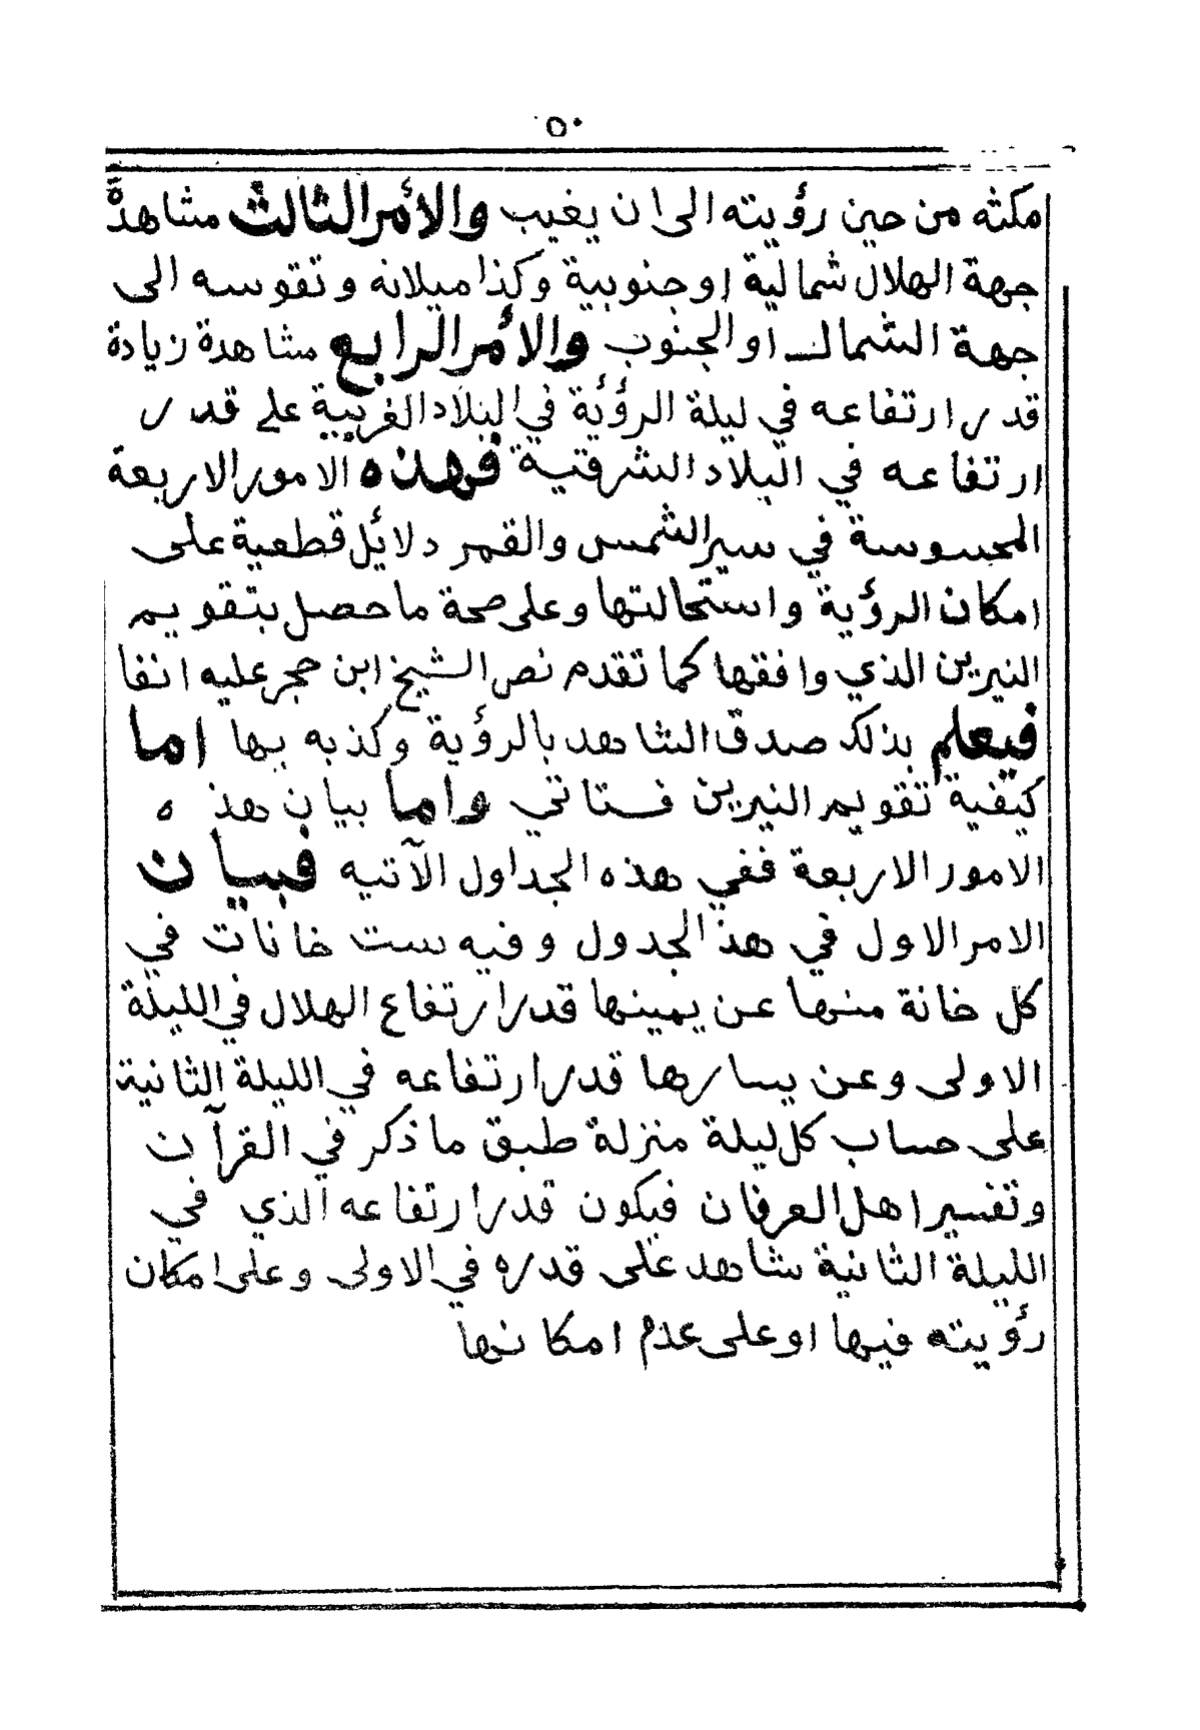 ٥٠
مكثه من حين رؤيته الى ان يغيب والأمر الثالث مشاهدة
جهة الهلال شمالية او جنوبية وكذا ميلانه وتقوسه الى
جهة الشمال او الجنوب والأمر الرابع مشاهدة زيادة
قدر ارتفاعه في ليلة الرؤية في البلاد الغربية على قدر
ارتفاعه في البلاد الشرقية فهذه الامور الاربعة
المحسوسة في سير الشمس والقمر دلائل قطعية على
امكان الرؤية واستحالتها وعلى صحة ما حصل بتقويم
النيرين الذي وافقها كما تقدم نص الشيخ ابن حجر عليه انفا
فيعلم بذلك صدق الشاهد بالرؤية وكذبه بها اما
كيفية تقويم النيرين فستاتي واما بيان هذه
الامور الاربعة ففي هذه الجداول الآتيه فبيان
الامر الاول في هذ الجدول وفيه ست خانات في
كل خانة منها عن يمينها قدر ارتفاع الهلال في الليلة
الاولى وعن يسارها قدر ارتفاعه في الليلة الثانية
على حساب كل ليلة منزلة طبق ما ذكر في القرآن
وتفسير اهل العرفان فيكون قدر ارتفاعه الذي في
الليلة الثانية شاهد على قدره في الاولى وعلى امكان
رؤيته فيها او على عدم امكانها